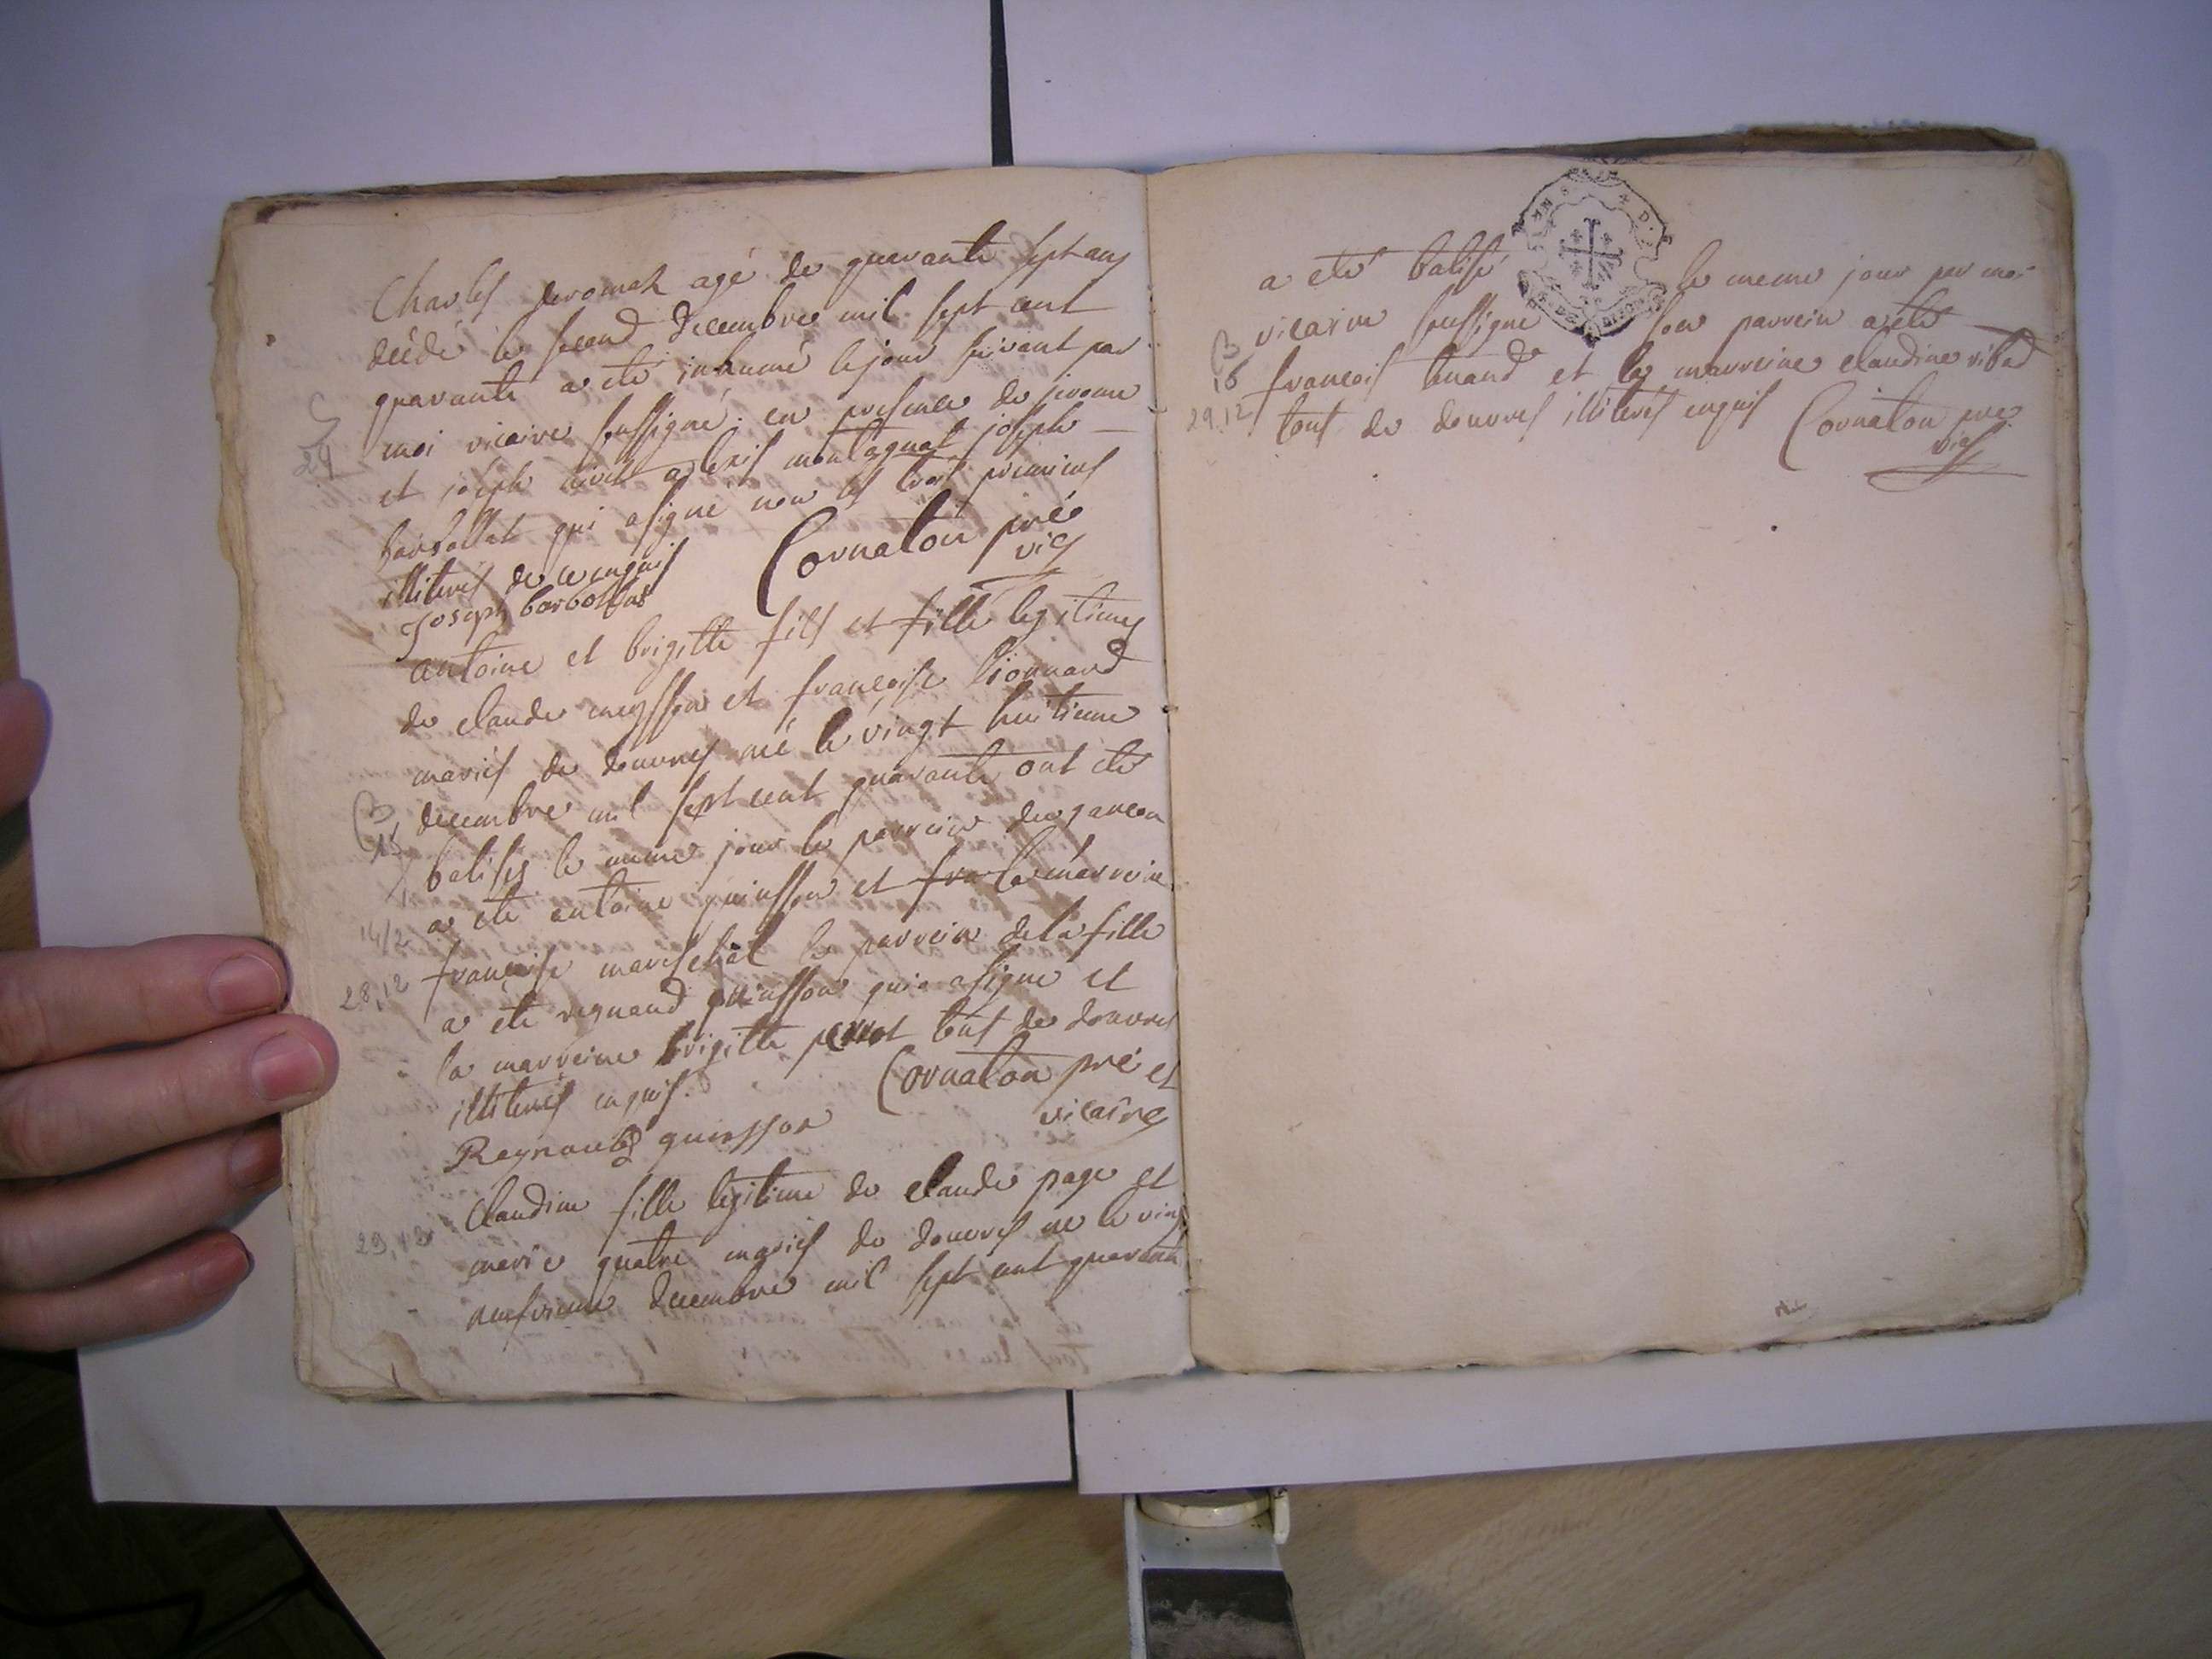 Charles agé de quarante sept ans
décédé le second decembre mil sept cent
quarante a eté inhumé le jour suivant par
moi vicaire soussigné en presence de jerome
et joseph montagnat joseph
qui a signé non les trois premiers
illiterés de ce enquis
Cornaton pre
vic
Joseph barbollat
antoine et brigitte fils et fille legitimes
de claude meysson et françoise
mariés de douvres né le vingt huitieme
decembre mil sept cent quarante ont eté
batisés le meme jour le parrein du garcon
a eté antoine quinsson et fra la marreine
françoise mareschal le parrein de la fille
a eté reynaud quinsson qui a signé et
la marreine brigitte perrot tous de douvres
illiterés enquis.
Cornaton pré et
vicaire
Reynaud quinsson
Claudine fille legitime de claude page et
marie quatre mariés de douvres né le vingt
neufvieme decembre mil sept cent quarante
B
15
28,12
24
29,12
a eté batisé le meme jour par moi
vicaire soussigné son parrein a eté
françois et la marreine claudine
tous de douvres illiterés enquis
Cornaton pre
vic
B
16
29,12